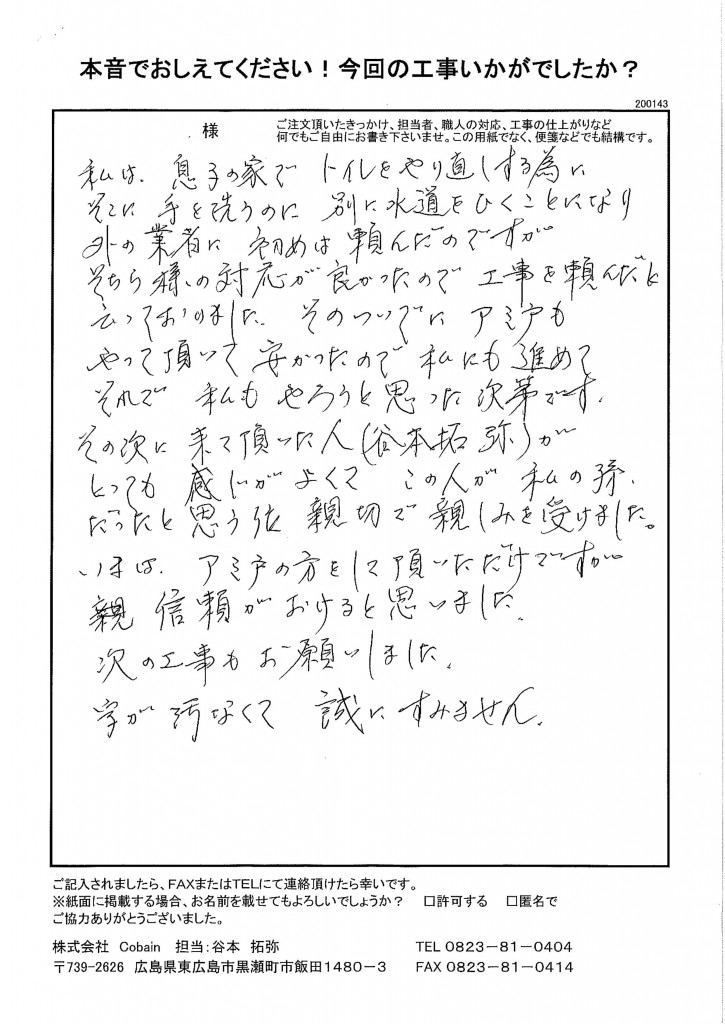 本音でおしえてください！今回の工事いかがでしたか？
200143
様
ご注文頂いたきっかけ、担当者、職人の対応、工事の仕上がりなど
何でもご自由にお書き下さいませ。この用紙でなく、便箋などでも結構です。
私は、息子の家で トイレをやり直しする為に
そこに 手を洗うのに 別に水道をひくことになり
外の業者に 初めは頼んだのですが
そちら様の対応が良かったので 工事を頼んだと
云っておりました。そのついでに アミ戸も
やって頂いて 安かったので 私にも進めて
それで 私もやろうと思った次第です。
その次に 来て頂いた人（谷本拓弥）が
とっても 感じがよくて この人が 私の孫
だったと思う位 親切で親しみを受けました。
いまは、アミ戸の方をして頂いただけですが
親 信頼がおけると思いました。
次の工事もお願いしました。
字が汚なくて 誠にすみません。
ご記入されましたら、FAXまたはTELにて連絡頂けたら幸いです。
※紙面に掲載する場合、お名前を載せてもよろしいでしょうか？ □許可する □匿名で
ご協力ありがとうございました。
株式会社 Cobain 担当：谷本 拓弥 TEL 0823−81−0404
〒739−2626 広島県東広島市黒瀬町市飯田1480−3 FAX 0823−81−0414